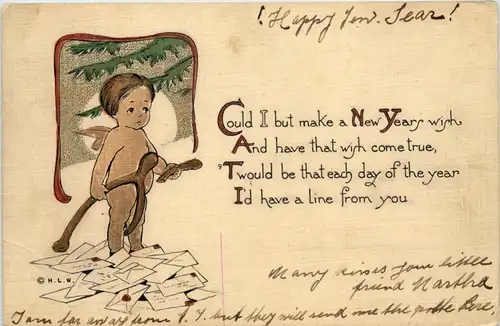 ! Happy Jew. Sear !
Could I but make a New Years wish
And have that wish come true,
'Twould be that each day of the year
I'd have a line from you
© H.L.W.
Many kisses your little
friend Martha
I am far away from N. Y. but they will send me the here.